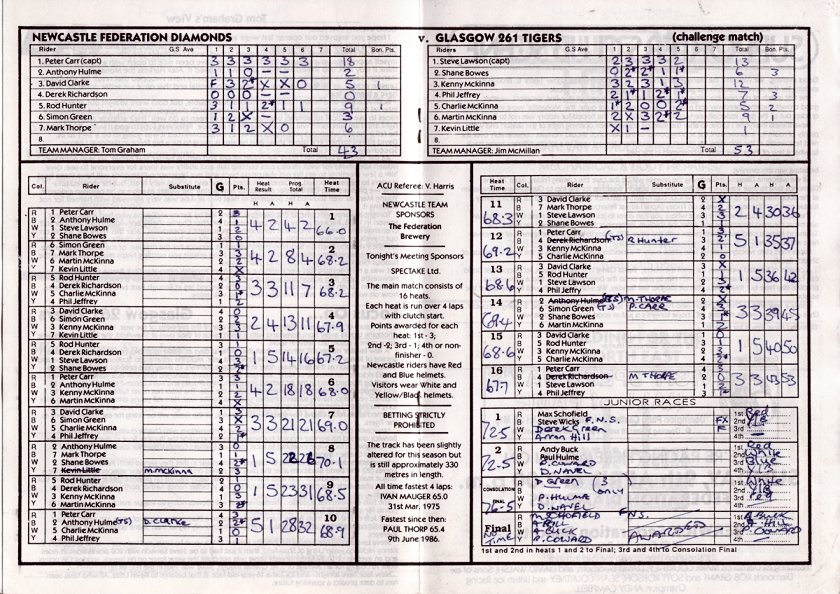 NEWCASTLE FEDERATION DIAMONDS
v. GLASGOW 261 TIGERS (challenge match)
Rider G.S Ave 1 2 3 4 5 6 7 Total Bon. Pts.
1. Peter Carr (capt) 3 3 3 3 3 3 18
2. Anthony Hulme 1 1 0 – – 2
3. David Clarke F 3 2* X X 0 5 1
4. Derek Richardson 0 0 0 – – 0
5. Rod Hunter 3 1 1 2* 1 1 9 1
6. Simon Green 1 2 X – 3
7. Mark Thorpe 3 1 2 X 0 6
8.
TEAM MANAGER: Tom Graham Total 43
Riders G.S Ave 1 2 3 4 5 6 7 Total Bon. Pts.
1. Steve Lawson (capt) 2 3 3 3 2 13
2. Shane Bowes 0 2* 2* 1 1* 6 3
3. Kenny McKinna 3 2 3 1 3 12
4. Phil Jeffrey 2 1* 1 2* 1* 7 3
5. Charlie McKinna 1* 2 0 0 2* 5 2
6. Martin McKinna 2 X 3 2* 2 9 1
7. Kevin Little X 1 – 1
8.
TEAM MANAGER: Jim McMillan Total 53
Col. Rider Substitute G Pts. Heat Result Prog Total Heat Time
H A H A
R 1 Peter Carr
B 2 Anthony Hulme
W 1 Steve Lawson
Y 2 Shane Bowes
1 4 2 4 2 66.0
R 6 Simon Green
B 7 Mark Thorpe
W 6 Martin McKinna
Y 7 Kevin Little
2 4 2 8 4 68.2
R 5 Rod Hunter
B 4 Derek Richardson
W 5 Charlie McKinna
Y 4 Phil Jeffrey
3 3 3 11 7 68.2
R 3 David Clarke
B 6 Simon Green
W 3 Kenny McKinna
Y 7 Kevin Little
4 2 4 13 11 67.9
R 5 Rod Hunter
B 4 Derek Richardson
W 1 Steve Lawson
Y 2 Shane Bowes
5 1 5 14 16 67.2
R 1 Peter Carr
B 2 Anthony Hulme
W 3 Kenny McKinna
Y 6 Martin McKinna
6 4 2 18 18 68.0
R 3 David Clarke
B 6 Simon Green
W 5 Charlie McKinna
Y 4 Phil Jeffrey
7 3 3 21 21 69.0
R 2 Anthony Hulme
B 7 Mark Thorpe
W 2 Shane Bowes
Y 7 Kevin Little M.McKinna
8 1 5 22 26 70.1
R 5 Rod Hunter
B 4 Derek Richardson
W 3 Kenny McKinna
Y 6 Martin McKinna
9 1 5 23 31 68.5
R 1 Peter Carr
B 2 Anthony Hulme (TS) D. CLARKE
W 5 Charlie McKinna
Y 4 Phil Jeffrey
10 5 1 28 32 68.9
ACU Referee: V. Harris
NEWCASTLE TEAM
SPONSORS
The Federation
Brewery
Tonight's Meeting Sponsors
SPECTAKE Ltd.
The main match consists of
16 heats.
Each heat is run over 4 laps
with clutch start.
Points awarded for each
heat: 1st - 3;
2nd -2; 3rd - 1; 4th or non-
finisher - 0.
Newcastle riders have Red
and Blue helmets.
Visitors wear White and
Yellow/Black helmets.
BETTING STRICTLY
PROHIBITED
The track has been slightly
altered for this season but
is still approximately 330
metres in length.
All time fastest 4 laps:
IVAN MAUGER 65.0
31st Mar. 1975
Fastest since then:
PAUL THORP 65.4
9th June 1986.
Heat Time Col. Rider Substitute G Pts. H A H A
11 68.3
R 3 David Clarke
B 7 Mark Thorpe
W 1 Steve Lawson
Y 6 Martin McKinna
2 4 30 36
12 69.2
R 1 Peter Carr
B 4 Derek Richardson (TS) R Hunter
W 3 Kenny McKinna
Y 5 Charlie McKinna
5 1 35 37
13 68.6
R 3 David Clarke
B 5 Rod Hunter
W 1 Steve Lawson
Y 4 Phil Jeffry
1 5 36 42
14 69.4
R 2 Anthony Hulme (TS) M. THORPE
B 6 Simon Green (TS) P. CARR
W 2 Shane Bowes
Y 6 Martin McKinna
3 3 39 45
15 68.6
R 3 David Clarke
B 5 Rod Hunter
W 3 Kenny McKinna
Y 5 Charlie McKinna
1 5 40 50
16 67.7
R 1 Peter Carr
B 4 Derek Richardson M THORPE
W 1 Steve Lawson
Y 2 Shane Bowes
3 3 43 53
JUNIOR RACES
1 72.5
R Max Schofield
B Steve Wicks F.N.S. FX
W Derek Green F
Y Arron Hill
1st Red
2nd Y/B
3rd
4th
2 72.5
R Andy Buck
B Paul Hulme
W P. COWARD
Y D. NAVEL
1st Red
2nd White
3rd Blue
4th Y/B
CONSOLATION FINAL 76.5
R D Green (3
B ONLY)
W P. HULME
Y D. NAVEL
1st White
2nd Y/B
3rd Red
4th
Final NO TIME
R M. SCHOFIELD F.N.S.
B A HILL
W A BUCK
Y P. COWARD
AWARDED
1st A BUCK
2nd A HILL
3rd P. COWARD
4th
1st and 2nd in heats 1 and 2 to Final; 3rd and 4th to Consolation Final